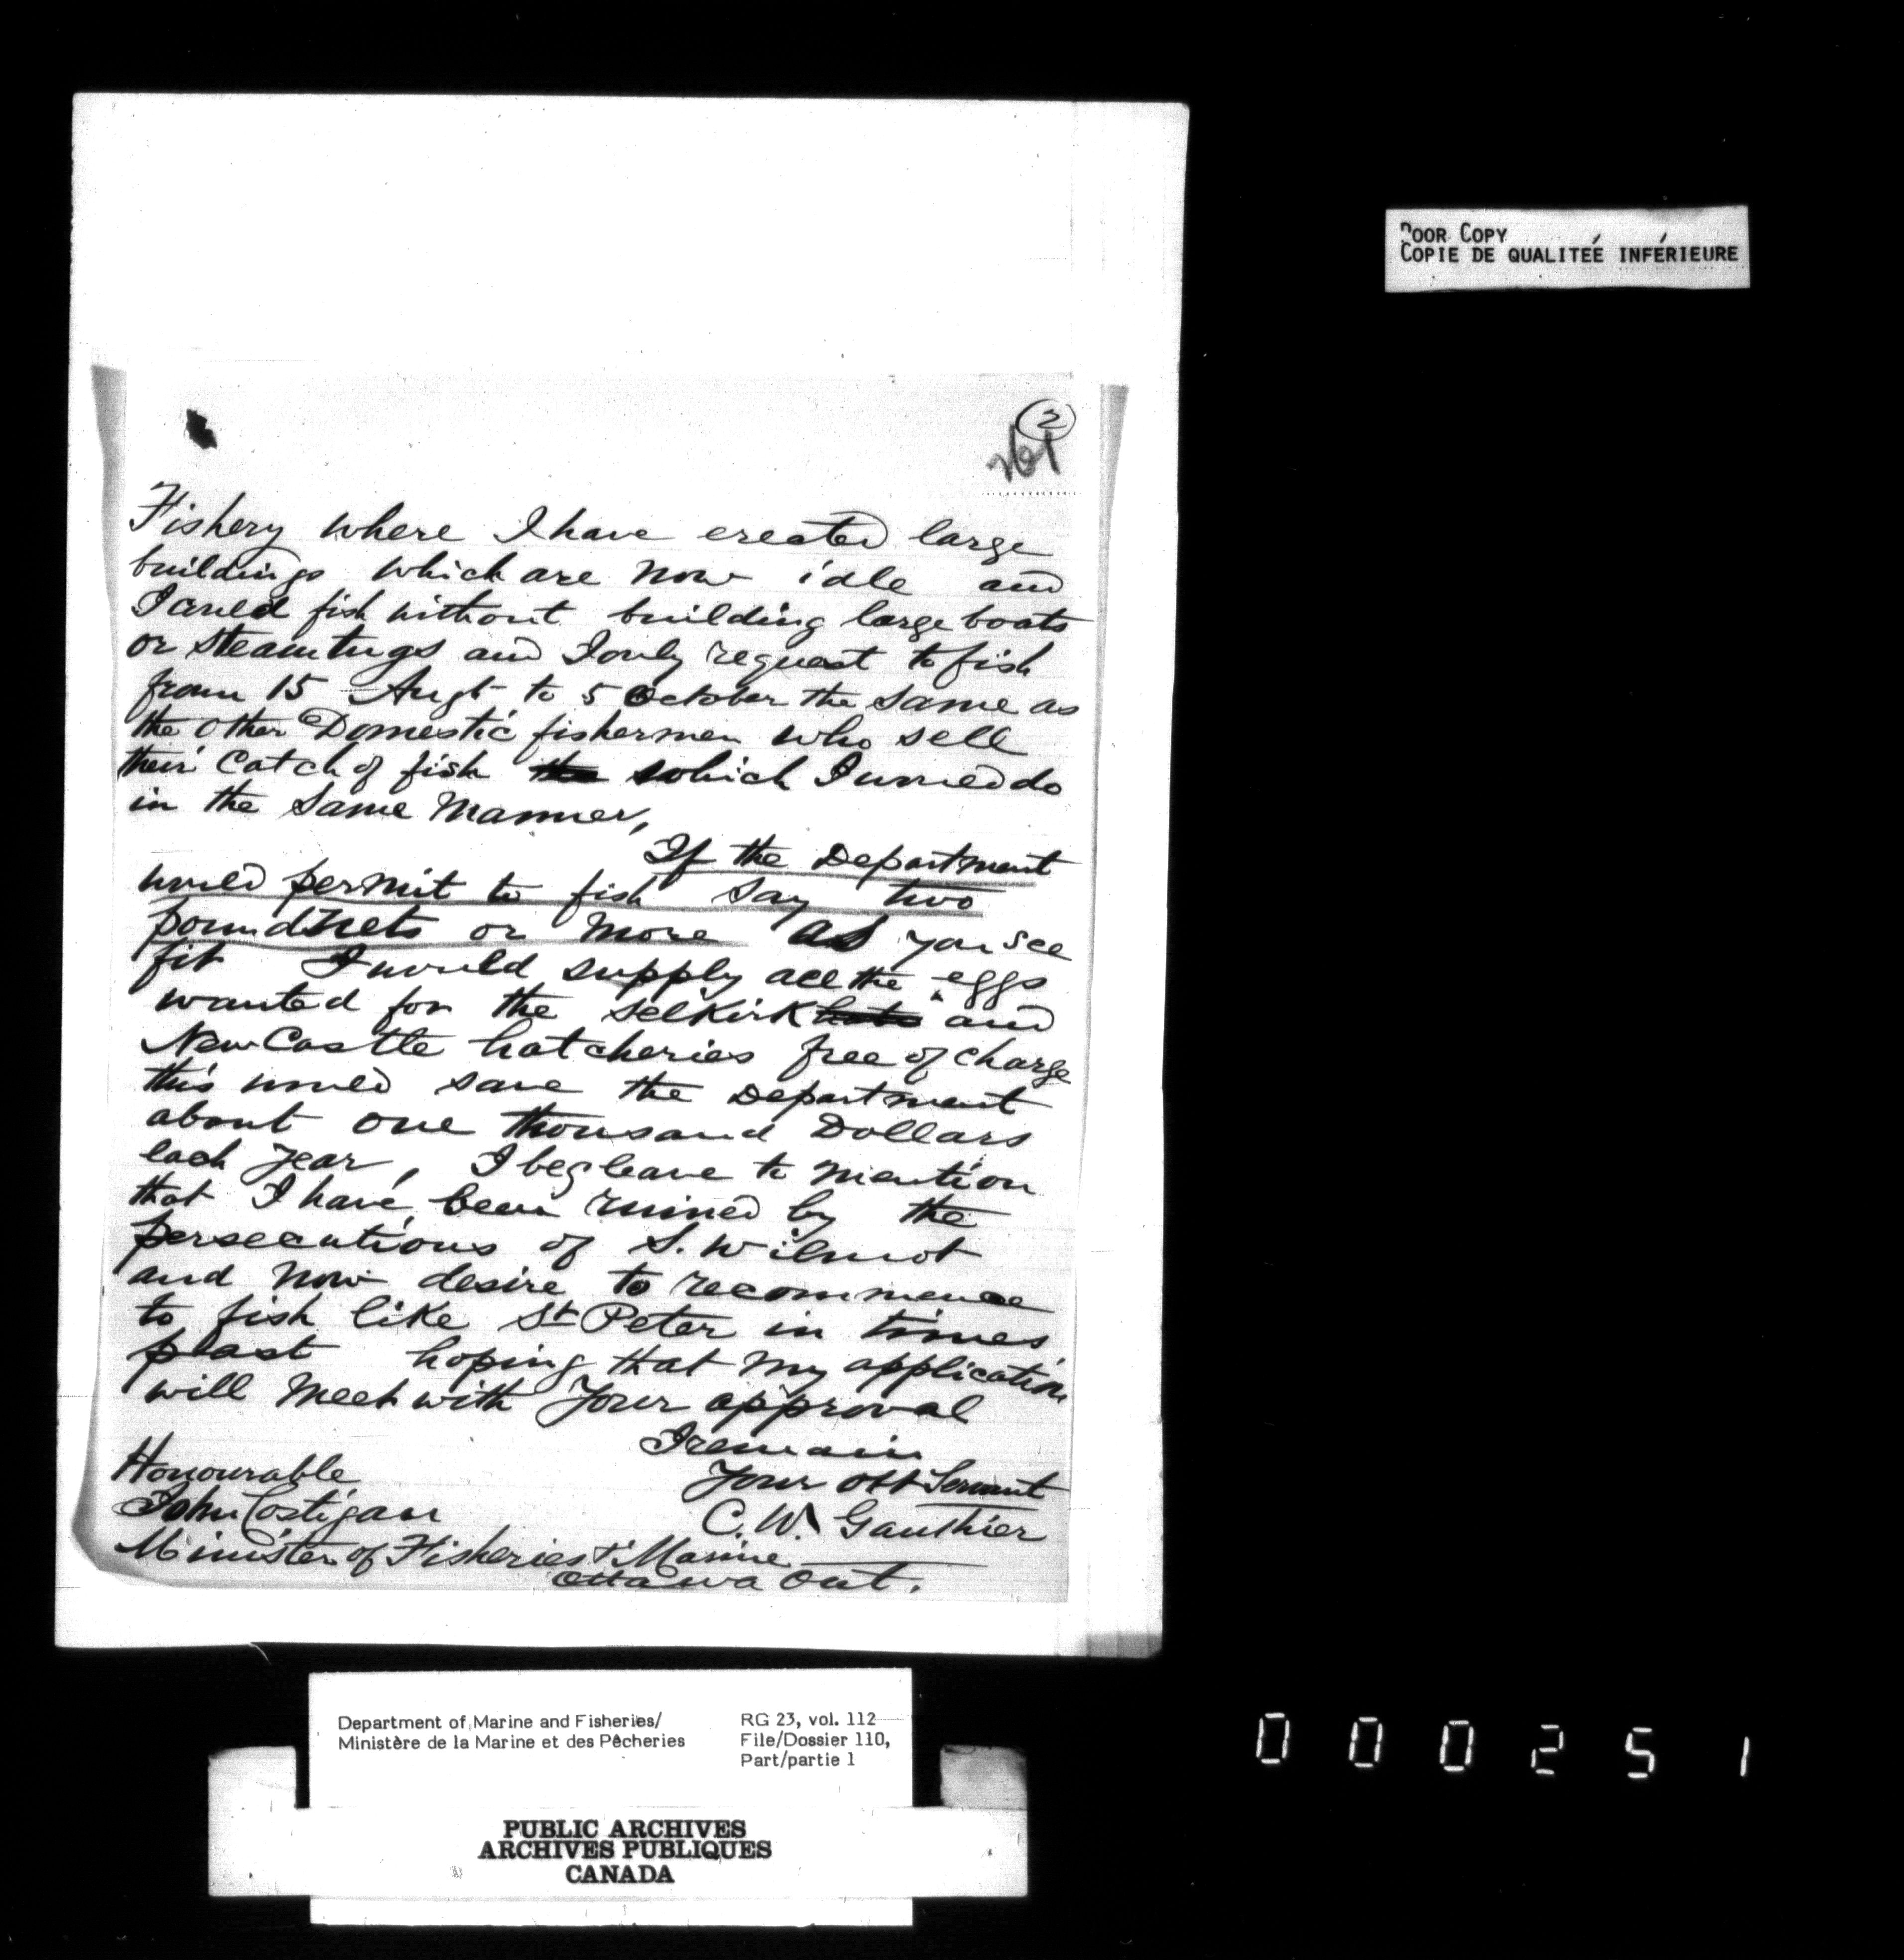 POOR COPY
COPIE DE QUALITÉE INFÉRIEURE
2
261
Fishery where I have erected large
buildings which are now idle and
I could fish without building large boats
or steamtugs and I only request to fish
from 15 Augt to 5 October the same as
the other Domestic fishermen who sell
their catch of fish the which I would do
in the same manner,
If the Department
would permit to fish say two
poundnets or more as you see
fit I would supply all the eggs
wanted for the Selkirk hats and
NewCastle hatcheries free of charge
this would save the Department
about one thousand Dollars
each year, I beg leave to mention
that I have been ruined by the
persecutions of S. Wilmot
and now desire to recommence
to fish like St Peter in times
past hoping that my application
will meet with your approval
I remain
Your obt Servant
C. W. Gauthier
Honourable
John Costigan
Minister of Fisheries & Marine
Ottawa Ont.
Department of Marine and Fisheries/
Ministère de la Marine et des Pêcheries
RG 23, vol. 112
File/Dossier 110,
Part/partie 1
PUBLIC ARCHIVES
ARCHIVES PUBLIQUES
CANADA
000251